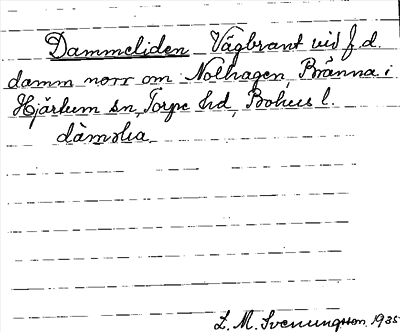 Dammeliden Vägbrant vid f.d.
damm norr om Nolhagen, Bränna i
Hjärtum sn, Torpe hd, Bohus l.
L. M. Svenungsson 1935